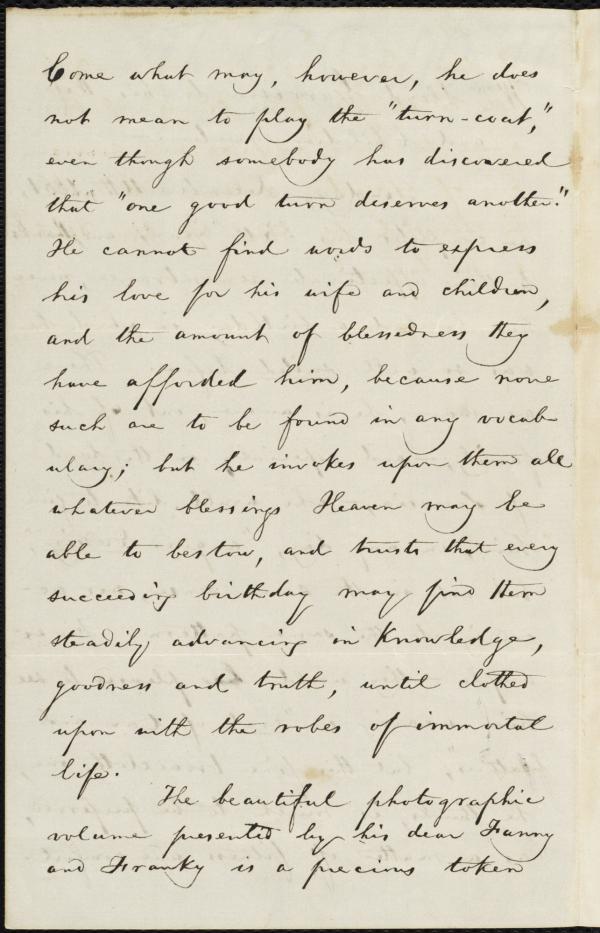 Come what may, however, he does
not mean to play the "turn-coat,"
even though somebody has discovered
that "one good turn deserves another."
He cannot find words to express
his love for his wife and children,
and the amount of blessedness they
have afforded him, because none
such are to be found in any vocab-
ulary; but he invokes upon them all
whatever blessings Heaven may be
able to bestow, and trusts that every
succeeding birthday may find them
steadily advancing in knowledge,
goodness and truth, until clothed
upon with the robes of immortal
life.
The beautiful photographic
volume presented by his dear Fanny
and Franky is a precious token